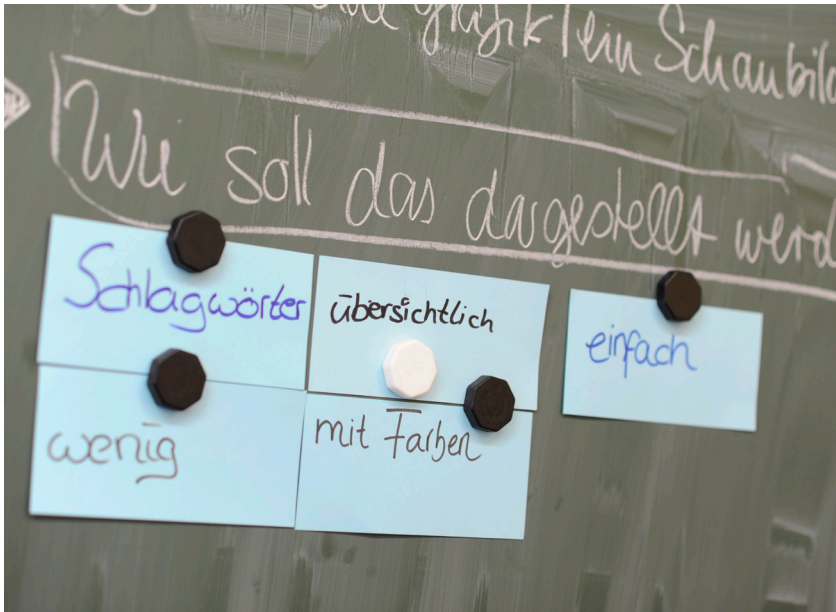 grafik / ein Schaubil
Wie soll das dargestellt werd
Schlagwörter
übersichtlich
einfach
wenig
mit Farben